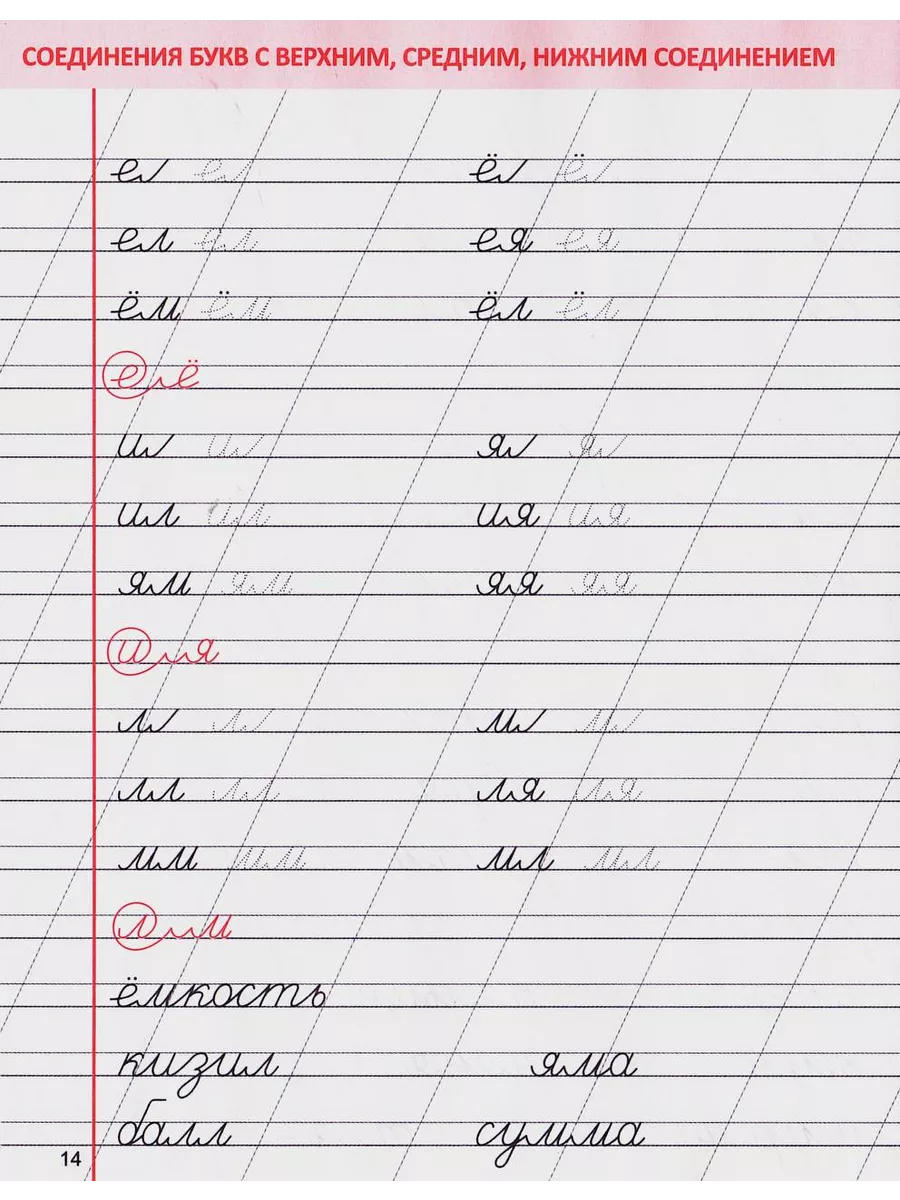 СОЕДИНЕНИЯ БУКВ С ВЕРХНИМ, СРЕДНИМ, НИЖНИМ СОЕДИНЕНИЕМ
е е ё ё
ел ел ея ея
ём ём ёл ёл
е ё
и и я я
ил ил ия ия
ям ям яя яя
и я
л л м м
лл лл ля ля
мм мм мл мл
л м
ёмкость
кизил яма
балл сумма
14